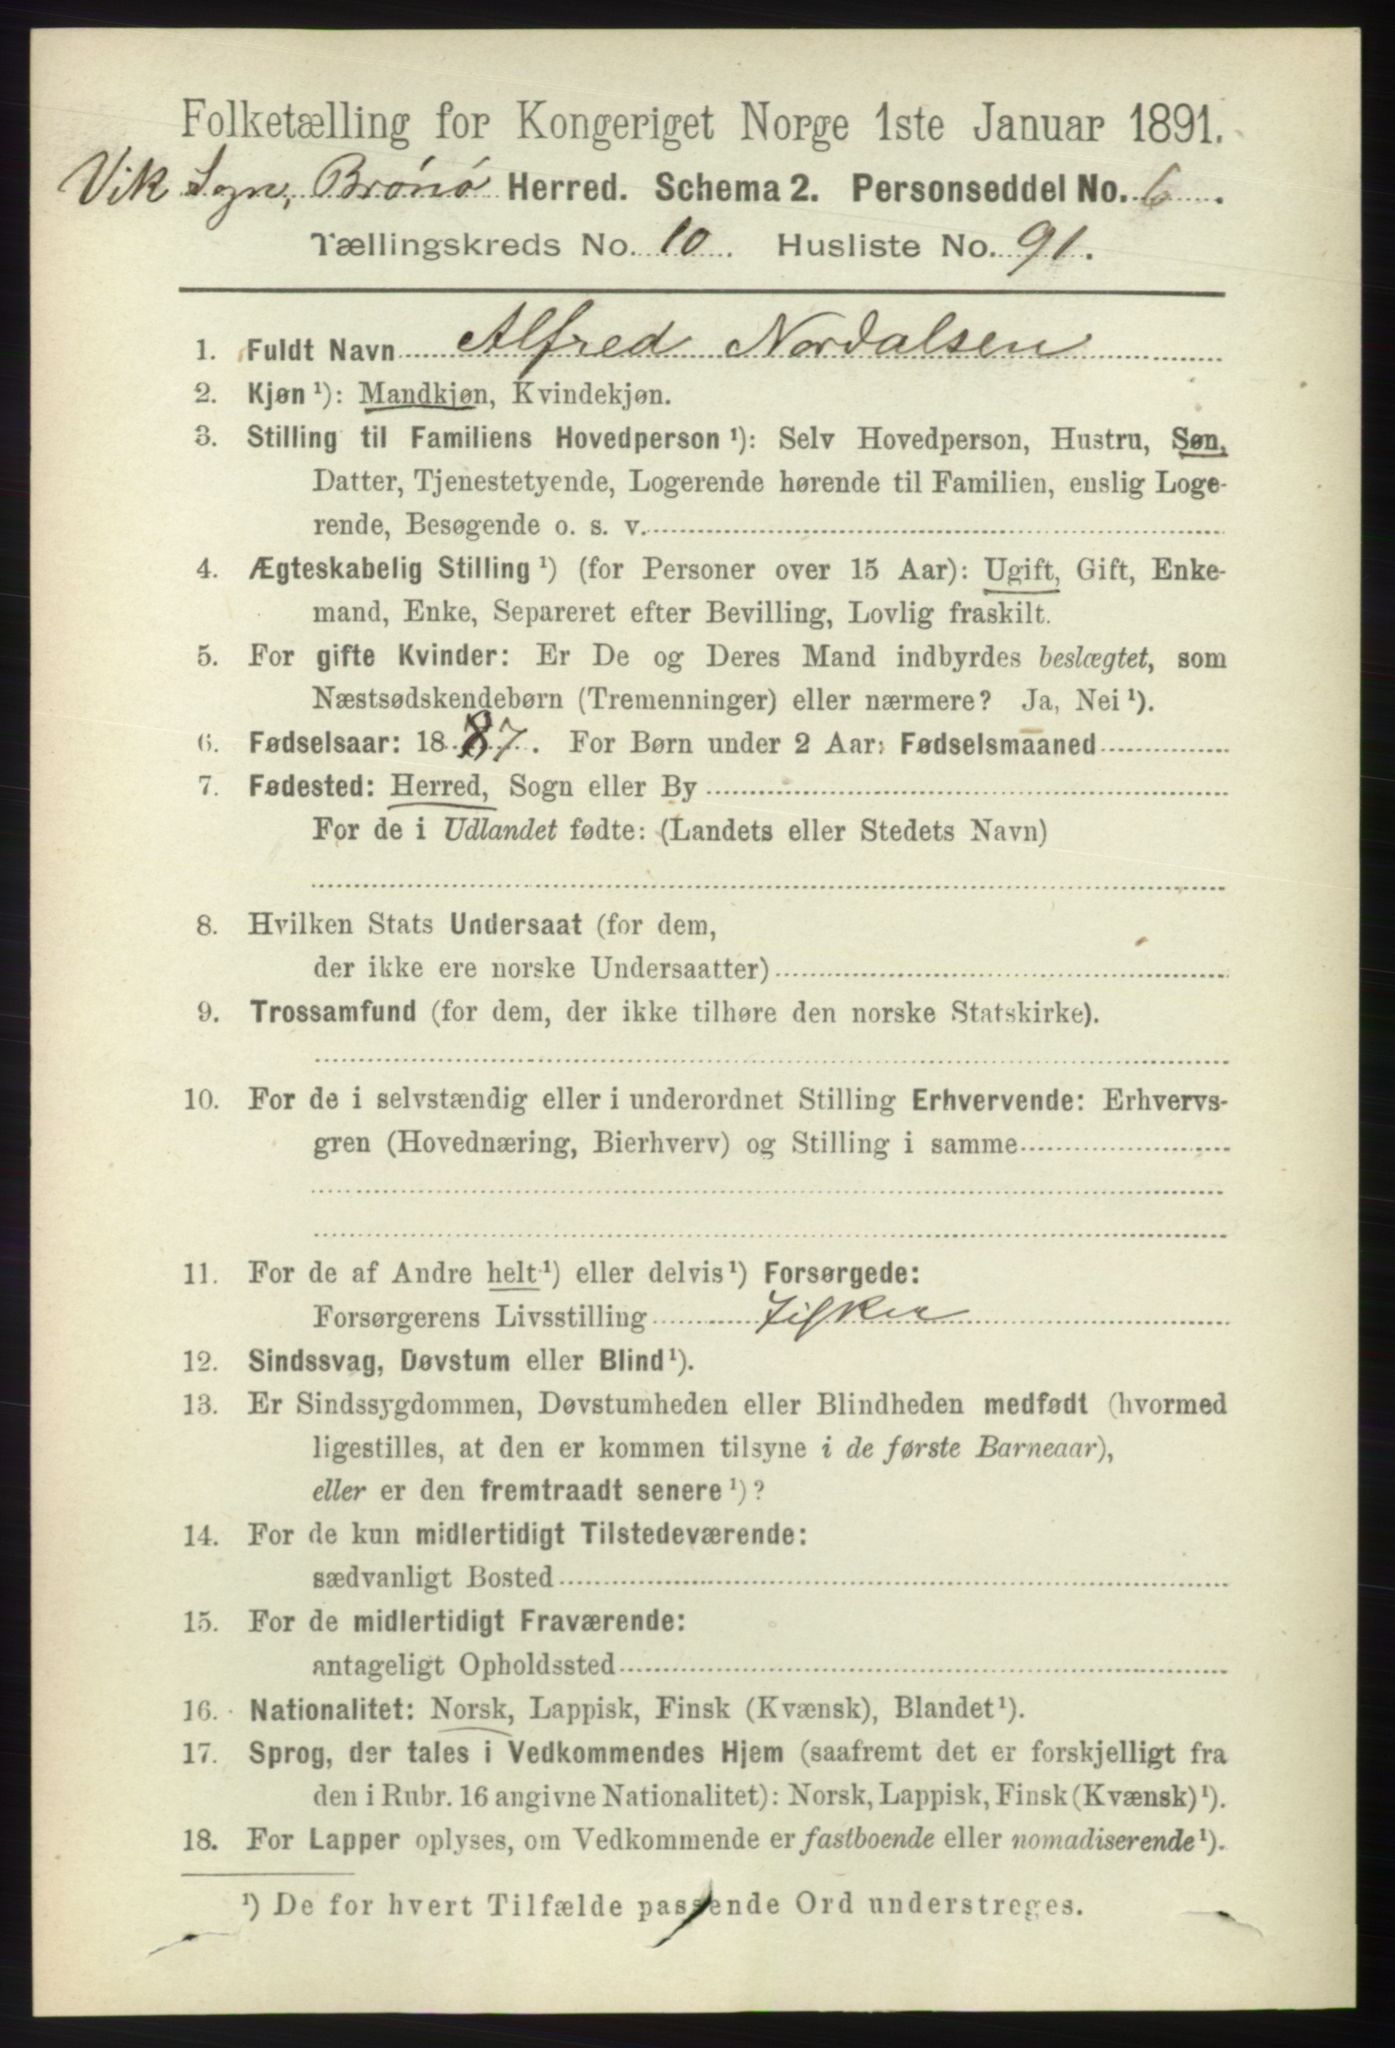 Folketælling for Kongeriget Norge 1ste Januar 1891.
Vik Sogn, Brönö Herred. Schema 2. Personseddel No. 6.
Tællingskreds No. 10. Husliste No. 91.
1. Fuldt Navn Alfred Nordalsen
2. Kjøn ¹): Mandkjøn, Kvindekjøn.
3. Stilling til Familiens Hovedperson ¹): Selv Hovedperson, Hustru, Søn,
Datter, Tjenestetyende, Logerende hørende til Familien, enslig Loge-
rende, Besøgende o. s. v.
4. Ægteskabelig Stilling ¹) (for Personer over 15 Aar): Ugift, Gift, Enke-
mand, Enke, Separeret efter Bevilling, Lovlig fraskilt.
5. For gifte Kvinder: Er De og Deres Mand indbyrdes beslægtet, som
Næstsødskendebørn (Tremenninger) eller nærmere? Ja, Nei ¹).
6. Fødselsaar: 1887. For Børn under 2 Aar: Fødselsmaaned
7. Fødested: Herred, Sogn eller By
For de i Udlandet fødte: (Landets eller Stedets Navn)
8. Hvilken Stats Undersaat (for dem,
der ikke ere norske Undersaatter)
9. Trossamfund (for dem, der ikke tilhøre den norske Statskirke).
10. For de i selvstændig eller i underordnet Stilling Erhvervende: Erhvervs-
gren (Hovednæring, Bierhverv) og Stilling i samme
11. For de af Andre helt ¹) eller delvis ¹) Forsørgede:
Forsørgerens Livsstilling Fisker
12. Sindssvag, Døvstum eller Blind ¹).
13. Er Sindssygdommen, Døvstumheden eller Blindheden medfødt (hvormed
ligestilles, at den er kommen tilsyne i de første Barneaar),
eller er den fremtraadt senere ¹)?
14. For de kun midlertidigt Tilstedeværende:
sædvanligt Bosted
15. For de midlertidigt Fraværende:
antageligt Opholdssted
16. Nationalitet: Norsk, Lappisk, Finsk (Kvænsk), Blandet ¹).
17. Sprog, der tales i Vedkommendes Hjem (saafremt det er forskjelligt fra
den i Rubr. 16 angivne Nationalitet): Norsk, Lappisk, Finsk (Kvænsk) ¹).
18. For Lapper oplyses, om Vedkommende er fastboende eller nomadiserende ¹).
¹) De for hvert Tilfælde passende Ord understreges.